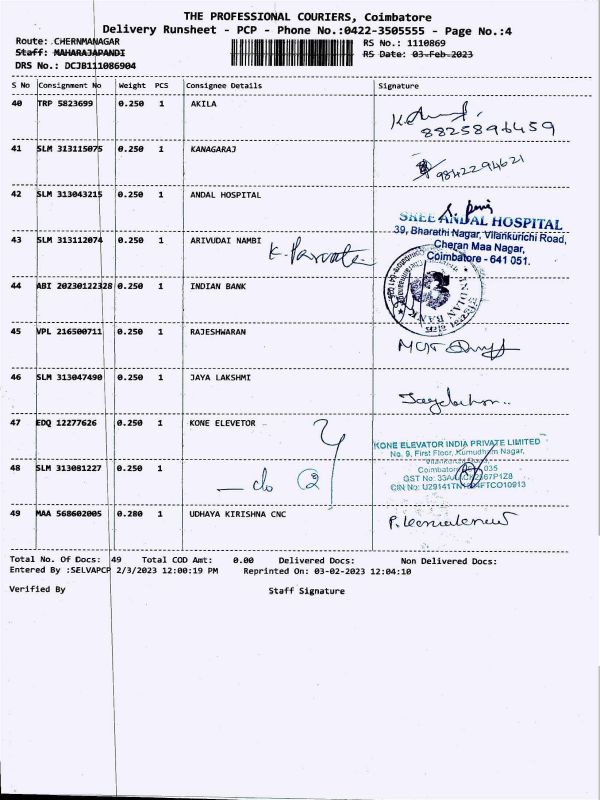 THE PROFESSIONAL COURIERS, Coimbatore
Delivery Runsheet - PCP - Phone No.:0422-3505555 - Page No.:4
Route: CHERNMANAGAR RS No.: 1110869
Staff: MAHARAJAPANDI RS Date: 03-Feb-2023
DRS No.: DCJB111086904
S No Consignment No Weight PCS Consignee Details Signature
40 TRP 5823699 0.250 1 AKILA
8825896459
41 SLM 313115075 0.250 1 KANAGARAJ 9842294621
42 SLM 313043215 0.250 1 ANDAL HOSPITAL
SREE ANDAL HOSPITAL
39, Bharathi Nagar, Vilankurichi Road,
43 SLM 313112074 0.250 1 ARIVUDAI NAMBI Cheran Maa Nagar,
Coimbatore - 641 051.
44 ABI 20230122328 0.250 1 INDIAN BANK
INDIAN BANK
45 VPL 216500711 0.250 1 RAJESHWARAN
46 SLM 313047490 0.250 1 JAYA LAKSHMI
47 EDQ 12277626 0.250 1 KONE ELEVETOR
KONE ELEVATOR INDIA PRIVATE LIMITED
No. 9, First Floor, Kumudham Nagar,
48 SLM 313081227 0.250 1
Coimbatore 035
— do 2
GST No: 33A
CIN No: U29141TN
49 MAA 568602005 0.280 1 UDHAYA KIRISHNA CNC
Total No. Of Docs: 49 Total COD Amt: 0.00 Delivered Docs: Non Delivered Docs:
Entered By :SELVAPCP 2/3/2023 12:00:19 PM Reprinted On: 03-02-2023 12:04:10
Verified By Staff Signature